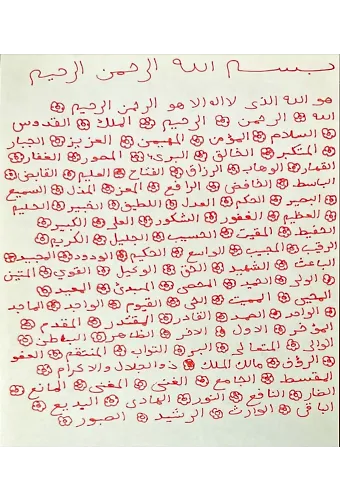 بسم الله الرحمن الرحيم
هو الله الذي لا اله الا هو الرحمن الرحيم
الله الرحمن الرحيم الملك القدوس
السلام المؤمن المهيمن العزيز الجبار
المتكبر الخالق البرئ المصور الغفار
القهار الوهاب الرزاق الفتاح العليم القابض
الباسط الخافض الرافع المعز المذل السميع
البصير الحكم العدل اللطيف الخبير الحليم
العظيم الغفور الشكور العلي الكبير
الحفيظ المقيت الحسيب الجليل الكريم
الرقيب المجيب الواسع الحكيم الودود المجيد
الباعث الشهيد الحق الوكيل القوي المتين
الولي الحميد المحصي المبدئ المعيد
المحيي المميت الحي القيوم الواجد الماجد
الواحد الصمد القادر المقتدر المقدم
المؤخر الاول الاخر الظاهر الباطن
الوالي المتعالي البر التواب المنتقم العفو
الرؤف مالك الملك ذو الجلال والاكرام
المقسط الجامع الغني المغني المانع
الضار النافع النور الهادي البديع
الباقي الوارث الرشيد الصبور